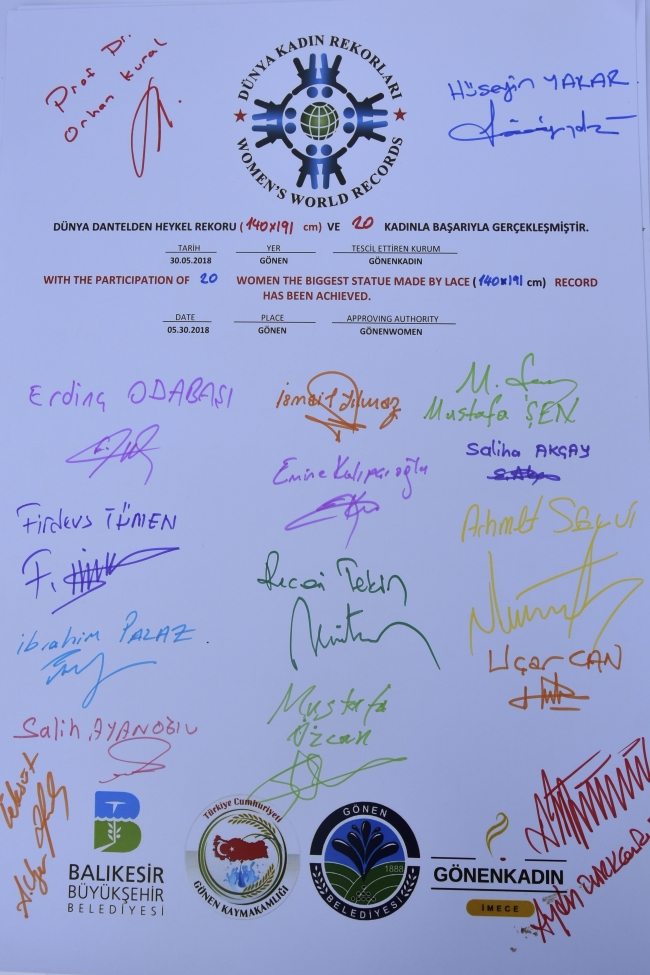 Prof Dr.
Orhan Kural
DÜNYA KADIN REKORLARI
WOMEN'S WORLD RECORDS
Hüseyin YAKAR
DÜNYA DANTELDEN HEYKEL REKORU (140x191 cm) VE 20 KADINLA BAŞARIYLA GERÇEKLEŞMİŞTİR.
TARİH YER TESCİL ETTİREN KURUM
30.05.2018 GÖNEN GÖNENKADIN
WITH THE PARTICIPATION OF 20 WOMEN THE BIGGEST STATUE MADE BY LACE (140x191 cm) RECORD
HAS BEEN ACHIEVED.
DATE PLACE APPROVING AUTHORITY
05.30.2018 GÖNEN GÖNENWOMEN
Erdinç ODABAŞI
ismail Yılmaz
Mustafa ŞEN
Saliha AKÇAY
Emine Kalıpçıoğlu
Firdevs TÜMEN
Ahmet
Recai Tekin
ibrahim PALAZ
Uçar CAN
Salih AYANOĞLU
Mustafa
Özcan
BALIKESİR
BÜYÜKŞEHİR
BELEDİYESİ
Türkiye Cumhuriyeti
GÖNEN KAYMAKAMLIĞI
GÖNEN
1888
BELEDİYESİ
GÖNENKADIN
İMECE